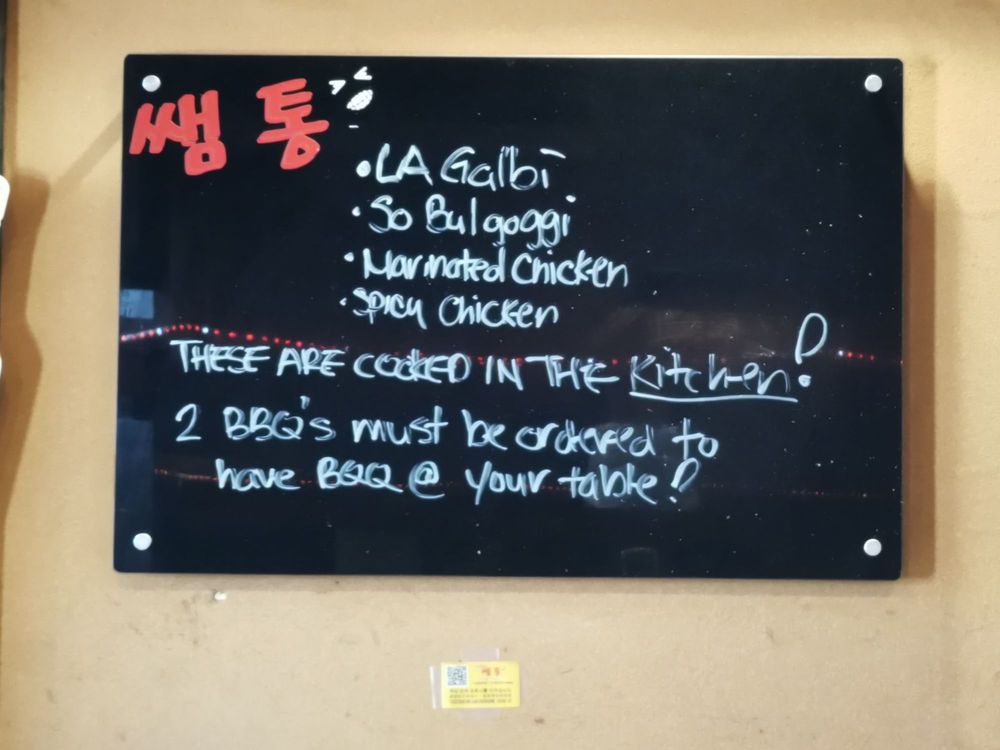 쌤통
• LA Galbi
• So Bulgoggi
• Marinated Chicken
• Spicy Chicken
THESE ARE COOKED IN THE Kitchen!
2 BBQ's must be ordered to
have BQQ @ your table!